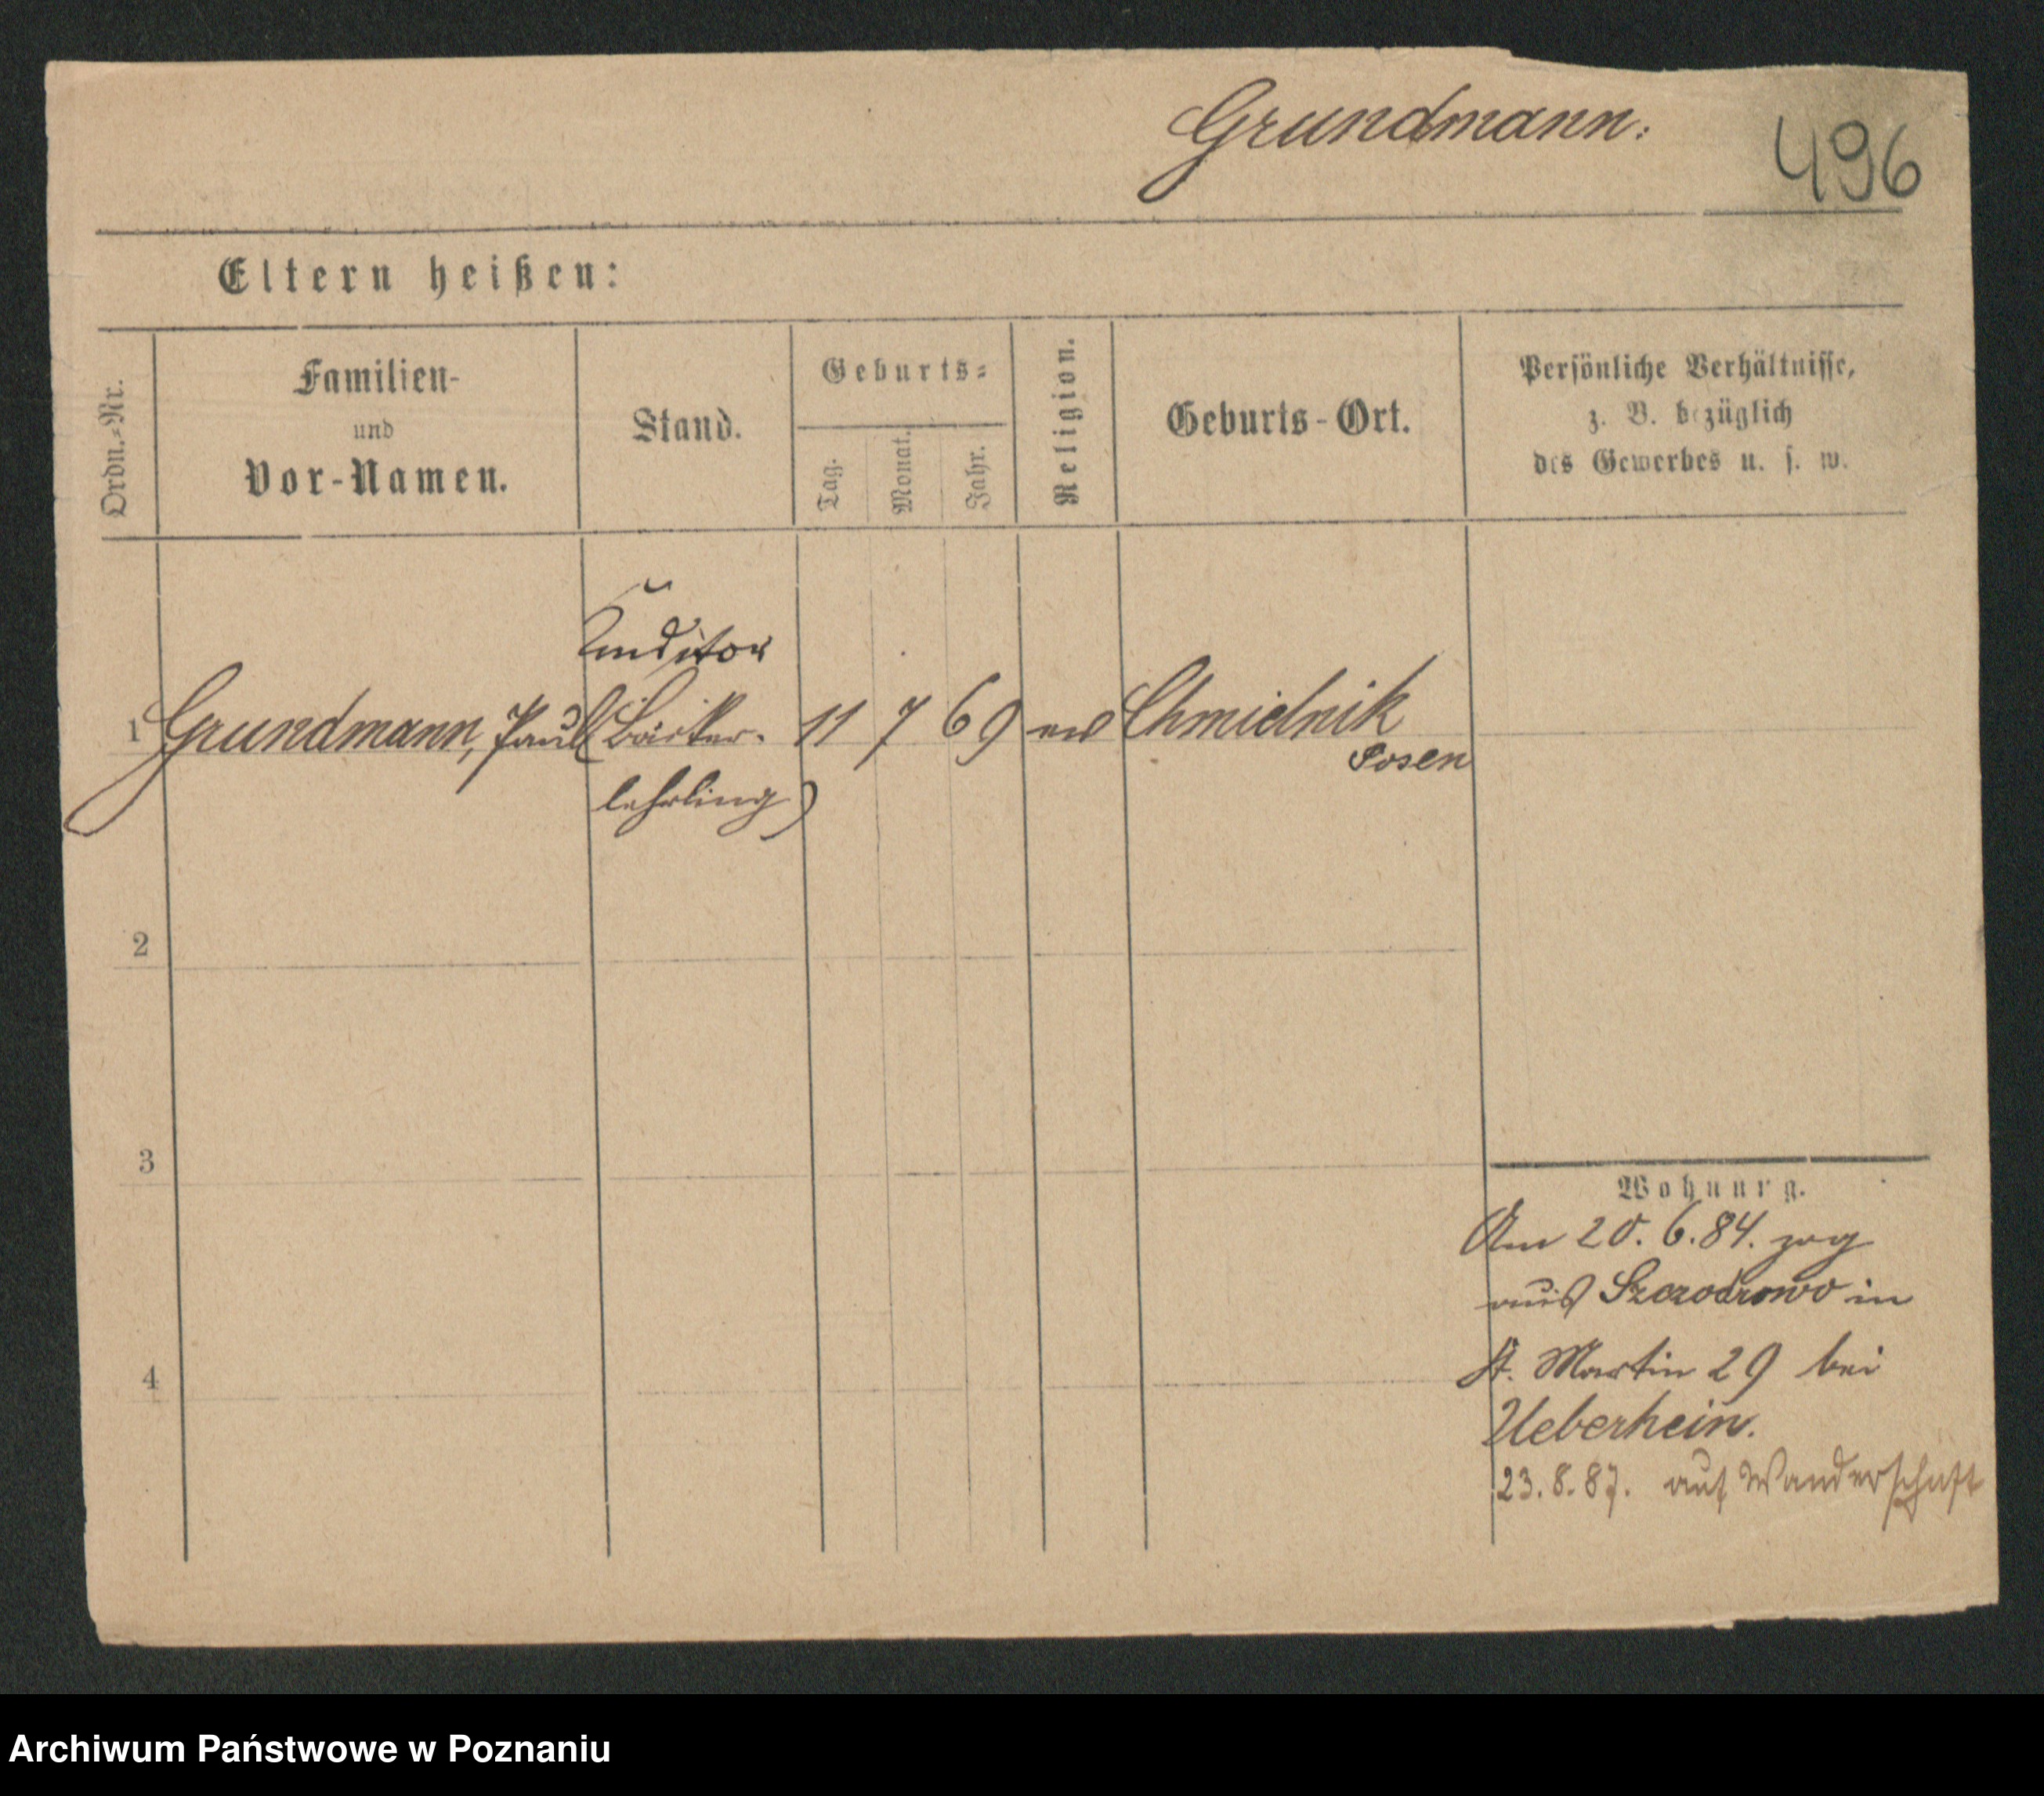 Grundmann:
496
Eltern heißen:
Ordn.-Nr.
Familien-
und
Vor-Namen.
Stand.
Geburts-
Tag.
Monat.
Jahr.
Religion.
Geburts-Ort.
Persönliche Verhältnisse,
z. B. bezüglich
des Gewerbes u. s. w.
Conditor
1 Grundmann, Paul (Bäcker- 11 7 69 ev Chmielnik
Posen
lehrling)
2
3
4
Wohnung.
Am 20. 6. 84. zog
aus Szczodrowo in
St. Martin 29 bei
Ueberhein.
23. 8. 87. auf Wanderschaft
Archiwum Państwowe w Poznaniu